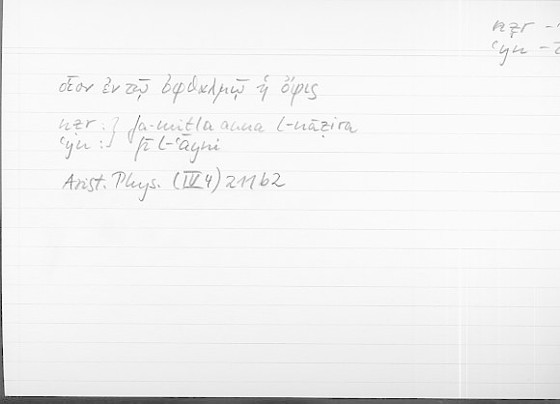 nẓr -
ʿyn -
οἷον ἐν τῷ ὀφθαλμῷ ἡ ὄψις
nẓr :} fa-mitla anna l-nāẓira
ʿyn :} fī l-ʿayni
Arist. Phys. (IV 4) 211b2